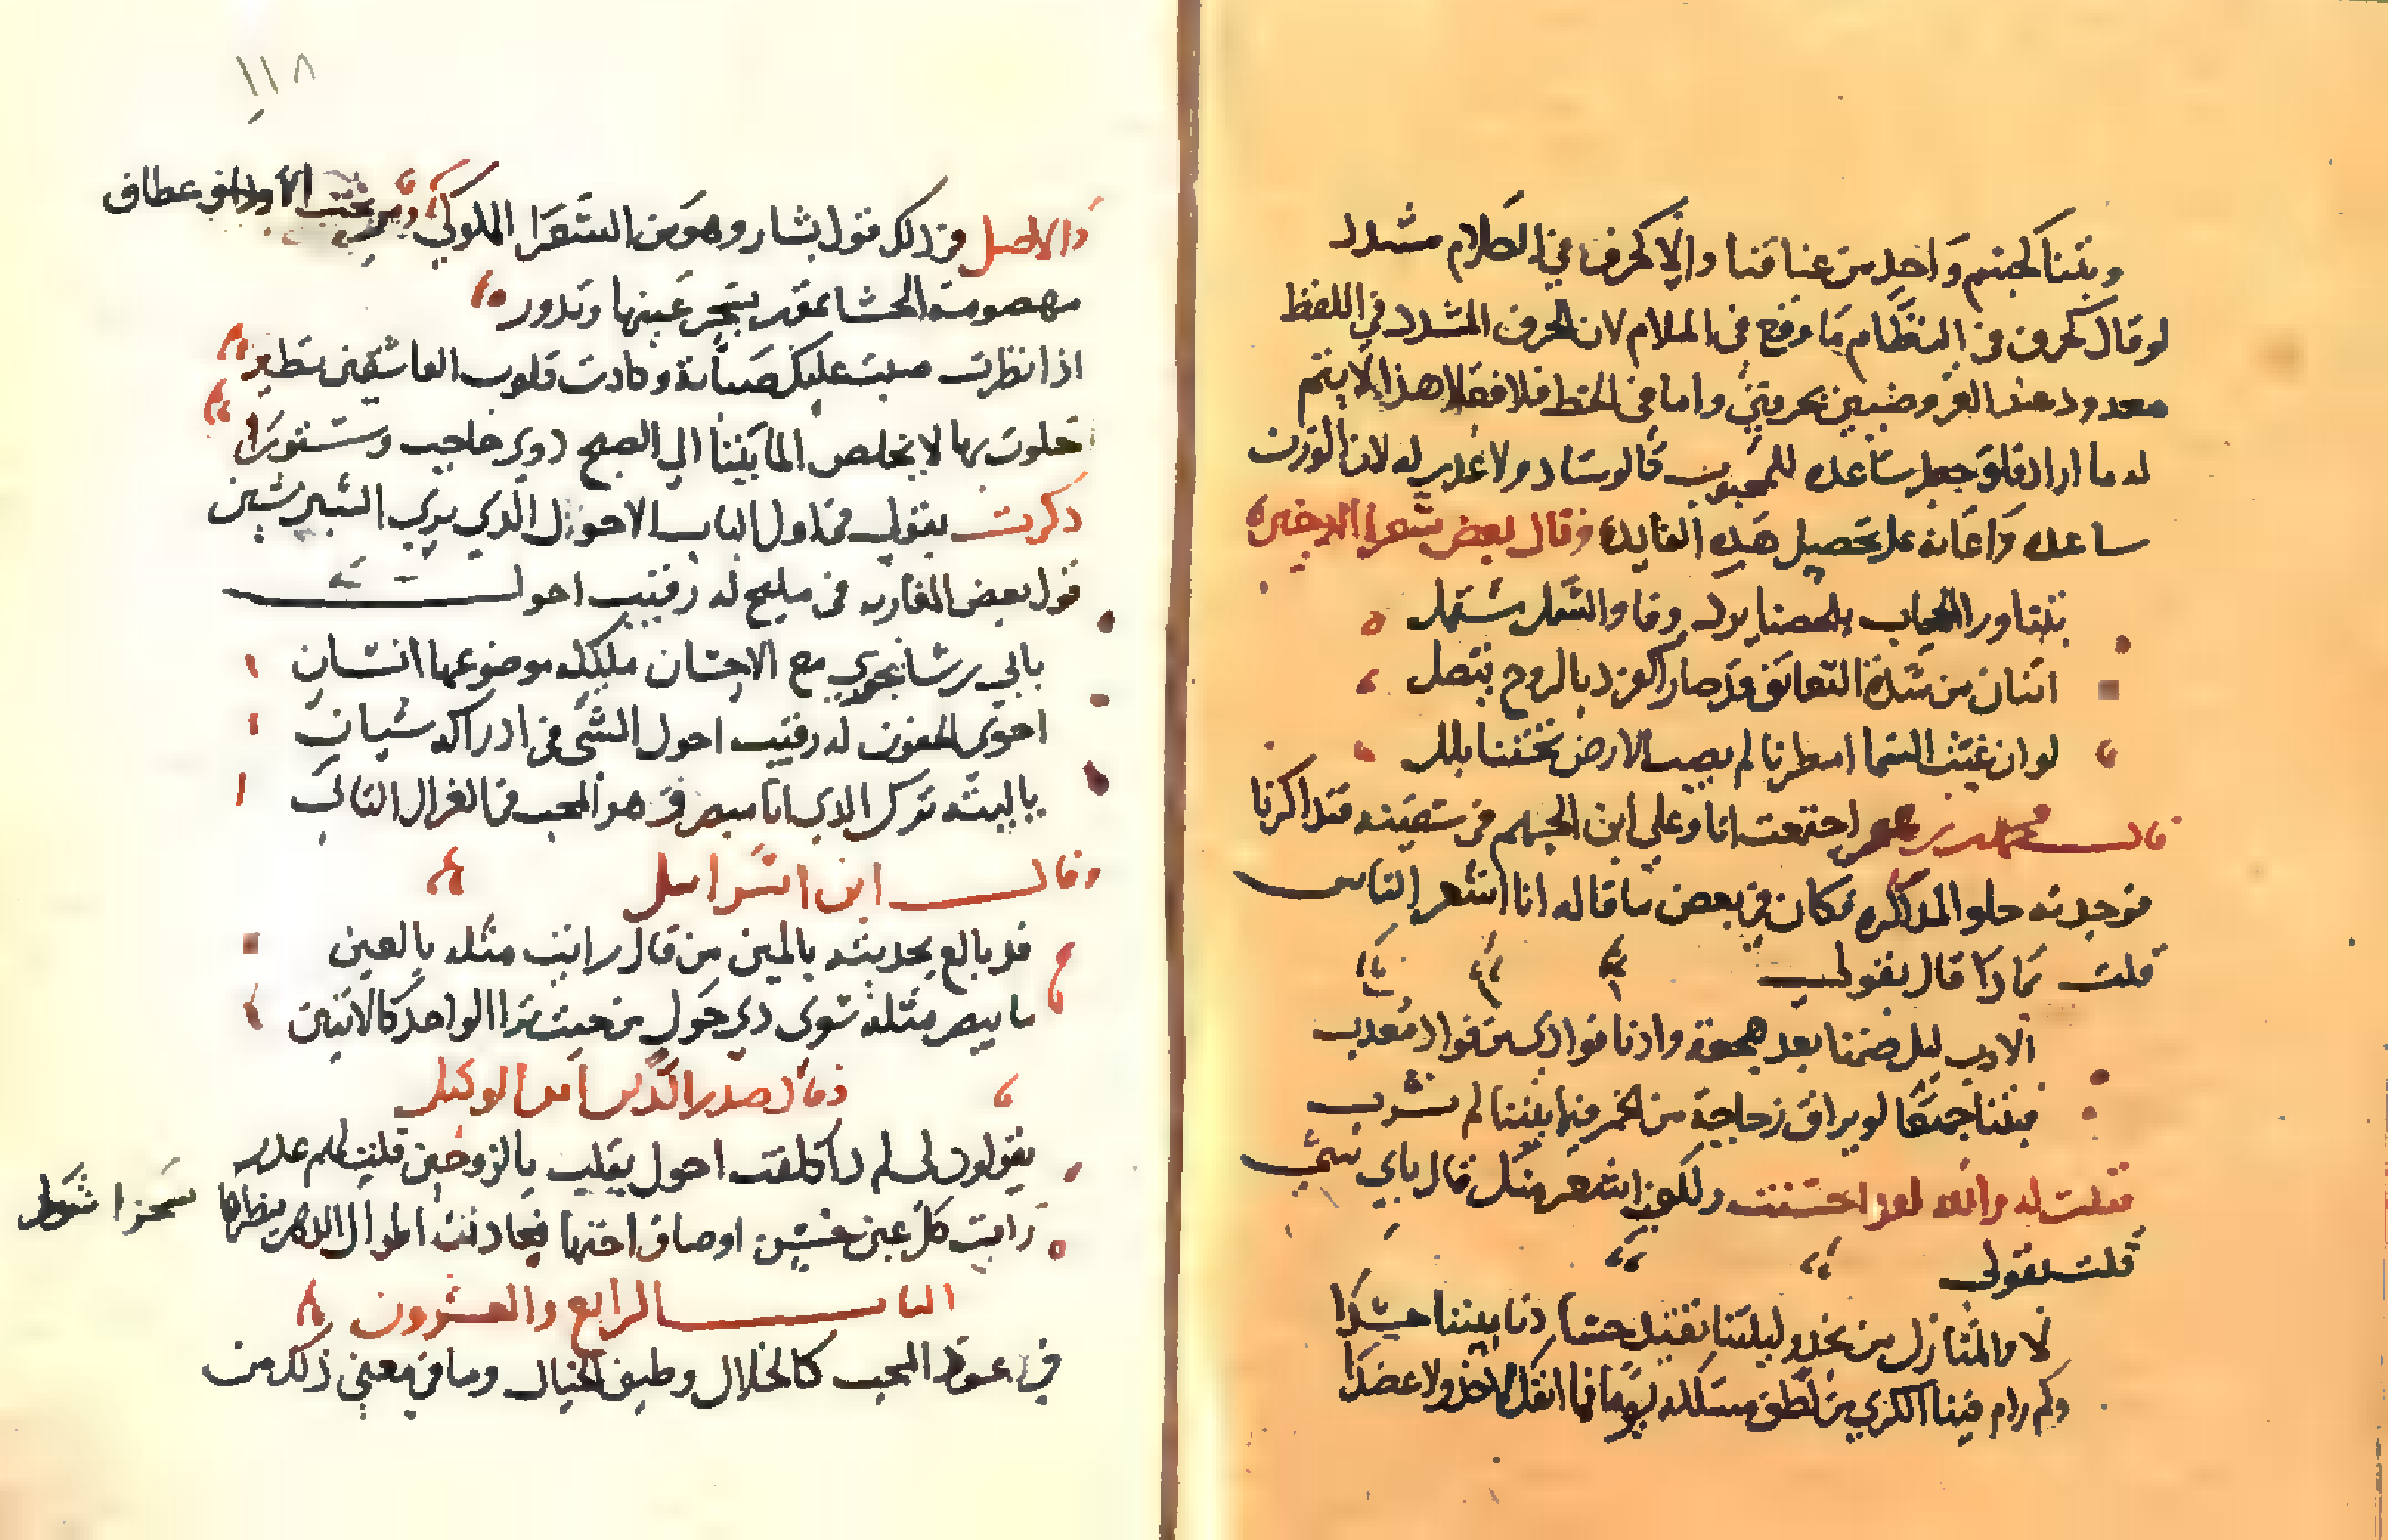 وبتنا كجسم واحد من عناقنا والا كحرف في الكلام مشدد
لو قال كحرف في النظام ما وقع في الملام لان الحرف المشدد في اللفظ
معدود عند العروضيين بحرفين واما في الخط فلا فعلا هذا لا يتم
له ما اراد ولو جعل ساعده للمحبوب قالو ساد ولا عدر له لان الوزن
ساعده واعانه على تحصيل هذه الفايده وقال بعض شعرا الدخيره
بتنا ورا الحجاب يلحفنا برد وفا والشمل مشتمل
اتنان من شدة التعانق قد صارا كفرد بالروح يتصل
لو ان غيث السما امطرنا لم يصب الارض تحتنا بلل
قال محمد بن عمر اجتمعت انا وعلي ابن الجهم في سفينه فتداكرنا
فوجدته حلو المداكره فكان في بعض ما قاله انا اشعر الناس
قلت بمادا قال بقولي
الارب ليل ضمنا بعد هجعة وادنا فوادي من فواد معدب
فبتنا جميعا لو يراق زجاجة من الخمر فيما بيننا لم تشرب
فقلت له والله لقد احسنت ولكن اشعر منك قال باي شي
قلت بقولي
لا والمنازل من نجد وليلتنا بفيد حتنا دنا بيننا جسدا
وكم رام فينا الكري من لطف مسلكه يوما فما انفك لا خد ولا عضدا
١١٨
والاصل في ذلك قول بشار وهو من الشعرا الملوكي ومرتجت الارداف عطاف
مهضومة الحشا تمور بسحر عينها وتدور
ادا نظرت صبت عليك صبابة وكادت قلوب العاشقين تطير
خلوت بها لا يخلص الما بيننا الي الصبح دوني حاجب وستورا
دكرت بقولي في اول الباب الاحول الذي يري الشي شين
قول بعض المغاربه في مليح له رقيب احول
بابي رشا نجوي مع الاحسان مليكه موضوعها انسان
احوى الجفون له رقيب احول الشي في ادراكه شيان
ياليته ترك الدي انا مبصر وهو المحب في الغزال التاني
وقال ابن اسرايل
قد بالغ بحديثه بالمين من قال رايت مثله بالعين
ما يبصر مثله سوى دي حول من حيت ترا الواحد كالاتنين
وقال صدر الدين ابن الوكيل
يقولون لي لم دا كلفت احول يقلب بالزوجين قلت لهم عدر
رايت كل عين حسن اوصاف اختها فعادتت اطوال الدهر ينظرها شزرا
الباب الرابع والعشرون
في عود المحب كالخلال وطيف الخيال وما في معنى ذلك من